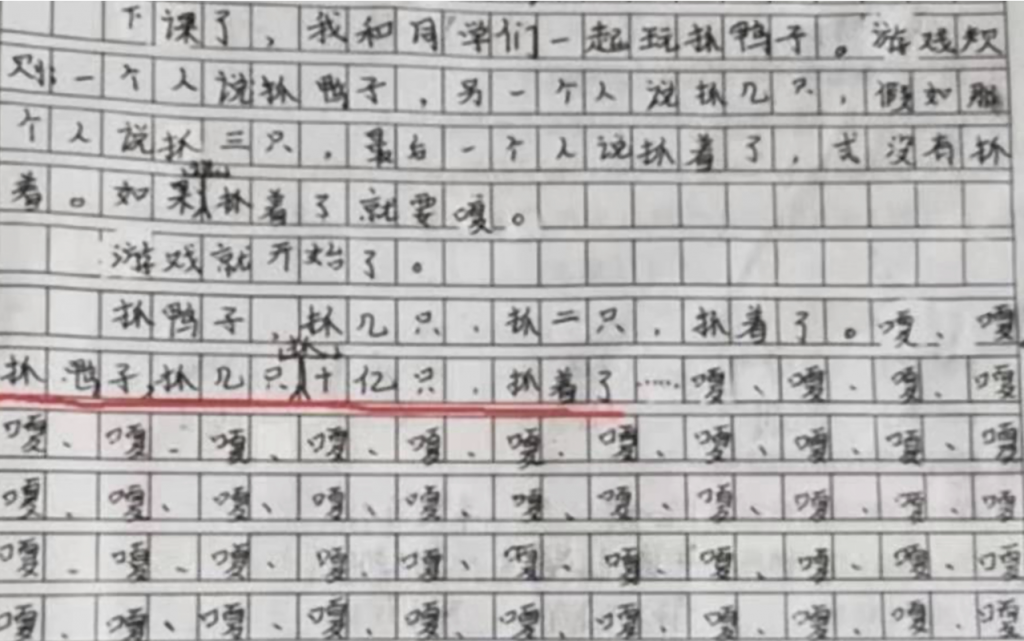 下课了，我和同学们一起玩抓鸭子。游戏规
则：一个人说抓鸭子，另一个人说抓几只，假如那
个人说抓三只，最后一个人说抓着了，或没有抓
着。如果抓着了就要嘎。
游戏就开始了。
抓鸭子，抓几只，抓二只，抓着了。嘎、嘎
抓鸭子，抓几只抓十亿只，抓着了……嘎、嘎、嘎、嘎
嘎、嘎、嘎、嘎、嘎、嘎、嘎、嘎、嘎、嘎、嘎
嘎、嘎、嘎、嘎、嘎、嘎、嘎、嘎、嘎、嘎、嘎
嘎、嘎、嘎、嘎、嘎、嘎、嘎、嘎、嘎、嘎、嘎
嘎、嘎、嘎、嘎、嘎、嘎、嘎、嘎、嘎、嘎、嘎